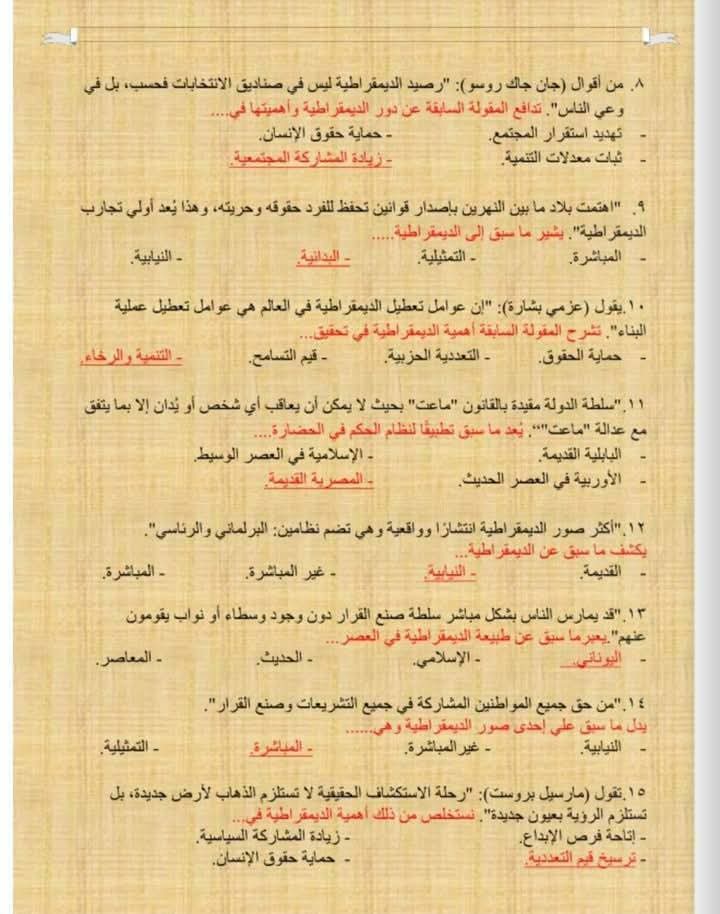 ٨. من أقوال (جان جاك روسو): "رصيد الديمقراطية ليس في صناديق الانتخابات فحسب، بل في
وعي الناس". تدافع المقولة السابقة عن دور الديمقراطية وأهميتها في....
- تهديد استقرار المجتمع. - حماية حقوق الإنسان.
- ثبات معدلات التنمية. - زيادة المشاركة المجتمعية.
٩. "اهتمت بلاد ما بين النهرين بإصدار قوانين تحفظ للفرد حقوقه وحريته، وهذا يُعد أولي تجارب
الديمقراطية". يشير ما سبق إلى الديمقراطية.....
- المباشرة. - التمثيلية. - البدائية. - النيابية.
١٠.يقول (عزمي بشارة): "إن عوامل تعطيل الديمقراطية في العالم هي عوامل تعطيل عملية
البناء". تشرح المقولة السابقة أهمية الديمقراطية في تحقيق...
- حماية الحقوق. - التعددية الحزبية. - قيم التسامح. - التنمية والرخاء.
١١."سلطة الدولة مقيدة بالقانون "ماعت" بحيث لا يمكن أن يعاقب أي شخص أو يُدان إلا بما يتفق
مع عدالة "ماعت"“. يُعد ما سبق تطبيقًا لنظام الحكم في الحضارة....
- البابلية القديمة. - الإسلامية في العصر الوسيط.
- الأوربية في العصر الحديث. - المصرية القديمة.
١٢."أكثر صور الديمقراطية انتشارًا وواقعية وهي تضم نظامين: البرلماني والرئاسي".
يكشف ما سبق عن الديمقراطية...
- القديمة. - النيابية. - غير المباشرة. - المباشرة.
١٣."قد يمارس الناس بشكل مباشر سلطة صنع القرار دون وجود وسطاء أو نواب يقومون
عنهم".يعبرما سبق عن طبيعة الديمقراطية في العصر...
- اليوناني. - الإسلامي. - الحديث. - المعاصر.
١٤."من حق جميع المواطنين المشاركة في جميع التشريعات وصنع القرار".
يدل ما سبق علي إحدى صور الديمقراطية وهي......
- النيابية. - غيرالمباشرة. - المباشرة. - التمثيلية.
١٥.تقول (مارسيل بروست): "رحلة الاستكشاف الحقيقية لا تستلزم الذهاب لأرض جديدة، بل
تستلزم الرؤية بعيون جديدة". نستخلص من ذلك أهمية الديمقراطية في...
- إتاحة فرص الإبداع. - زيادة المشاركة السياسية.
- ترسيخ قيم التعددية. - حماية حقوق الإنسان.